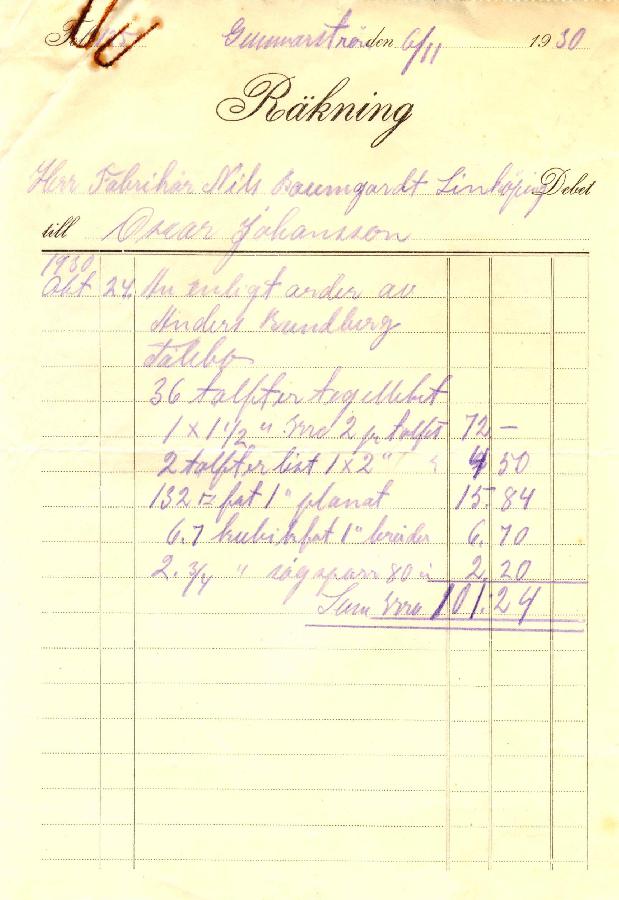 Gunnarström den 6/11 1930
Räkning
Herr Fabrikör Nils Baumgardt Linköping Debet
till Oscar Johansson
1930
Okt 24. An enligt order av
Anders Rundberg
Talebo
36 tolfter tegellekt
1 x 1 1/2 " Krr 2 pr tolft 72 –
2 tolfter list 1 x 2" 4 50
132 fot 1" planat 15. 84
6.7 kubikfot 1" bräder 6. 70
2. 3/4 " sågsparr 80 2. 20
Sum Krr 101. 24